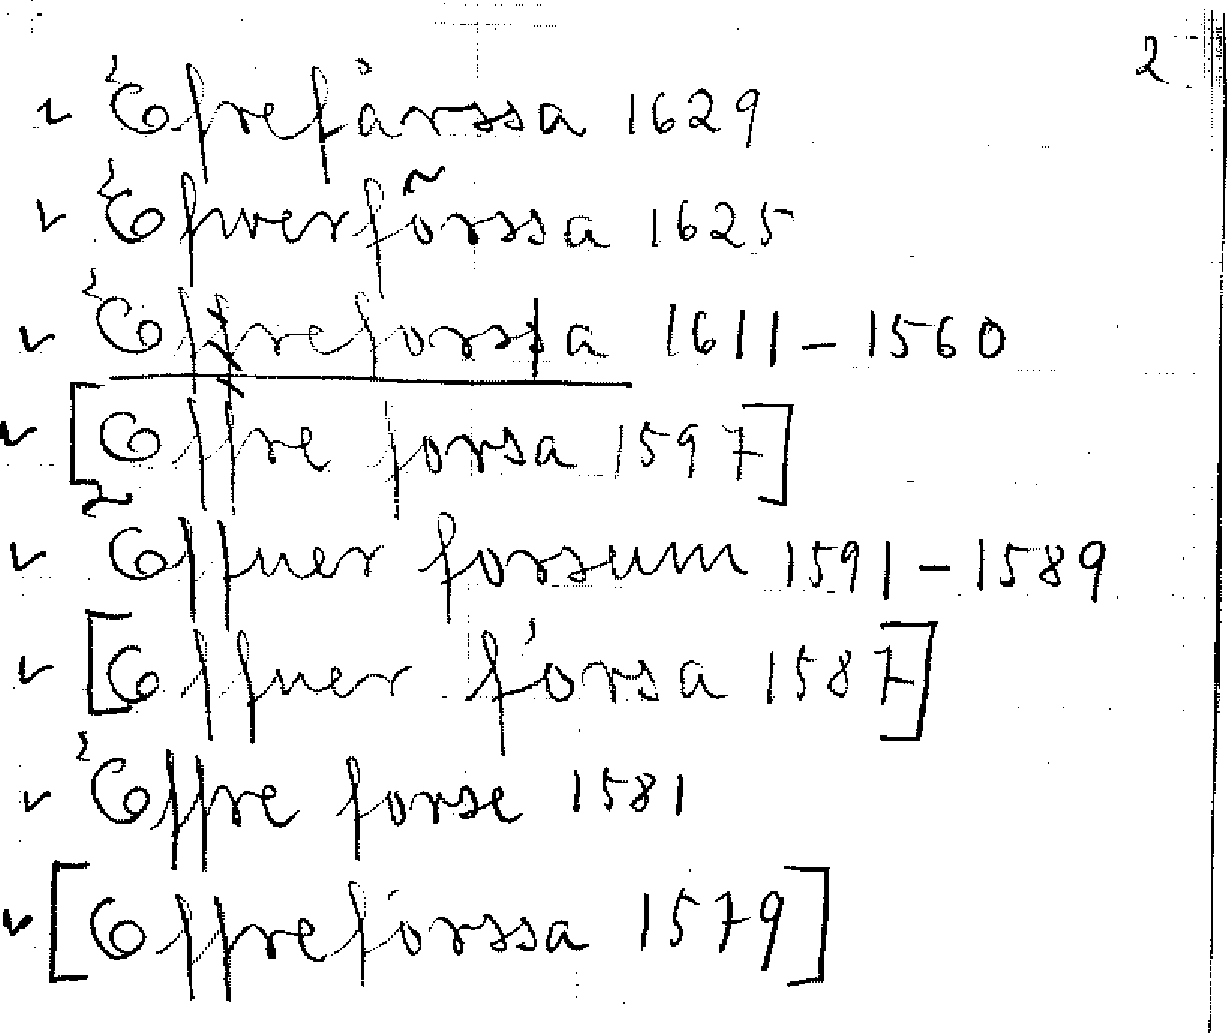 2
Efrefårssa 1629
Efverfõrssa 1625
Effreforssa 1611-1560
[Effre forsa 1597]
Effuer forsum 1591-1589
[Effuer fórsa 1587]
Effre forse 1581
[Effrefórssa 1579]